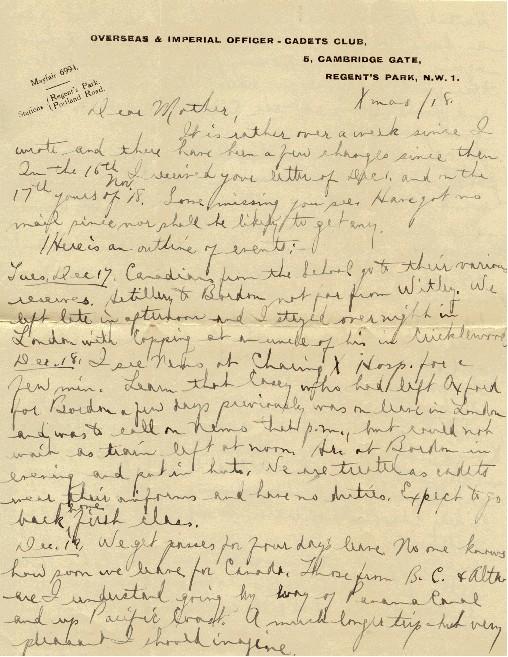 OVERSEAS & IMPERIAL OFFICER - CADETS CLUB,
5, CAMBRIDGE GATE,
REGENT'S PARK, N.W. 1.
Mayfair 6994.
Stations { Regent's Park.
Portland Road.
Xmas /18.
Dear Mother,
It is rather over a week since I
wrote and there have been a few changes since then
On the 16th I received your letter of Dec 1. and on the
17th yours of Nov 18. Some missing you see. Have got no
mail since nor shall be likely to get any.
Here is an outline of events:-
Tues, Dec 17. Canadians from the School go to their various
reserves. Artillery to Bordon not far from Witley. We
left late in afternoon and I stayed overnight in
London with Copping at an uncle of his in Cricklewood
Dec. 18. I see Nems. at Charing X Hosp. for a
few min. Learn that Casey who had left Oxford
for Bordon a few days previously was on leave in London
and was to call on Nems that p.m., but could not
wait as train left at noon. Arr. at Bordon in
evening and put in huts. We are treated as cadets
wear their uniforms and have no duties. Expect to go
back home first class.
Dec. 19, We get passes for four day's leave No one knows
how soon we leave for Canada. Those from B. C. & Alta
are I understand going by way of Panama Canal
and up Pacific Coast. A much longer trip but very
pleasant I should imagine.